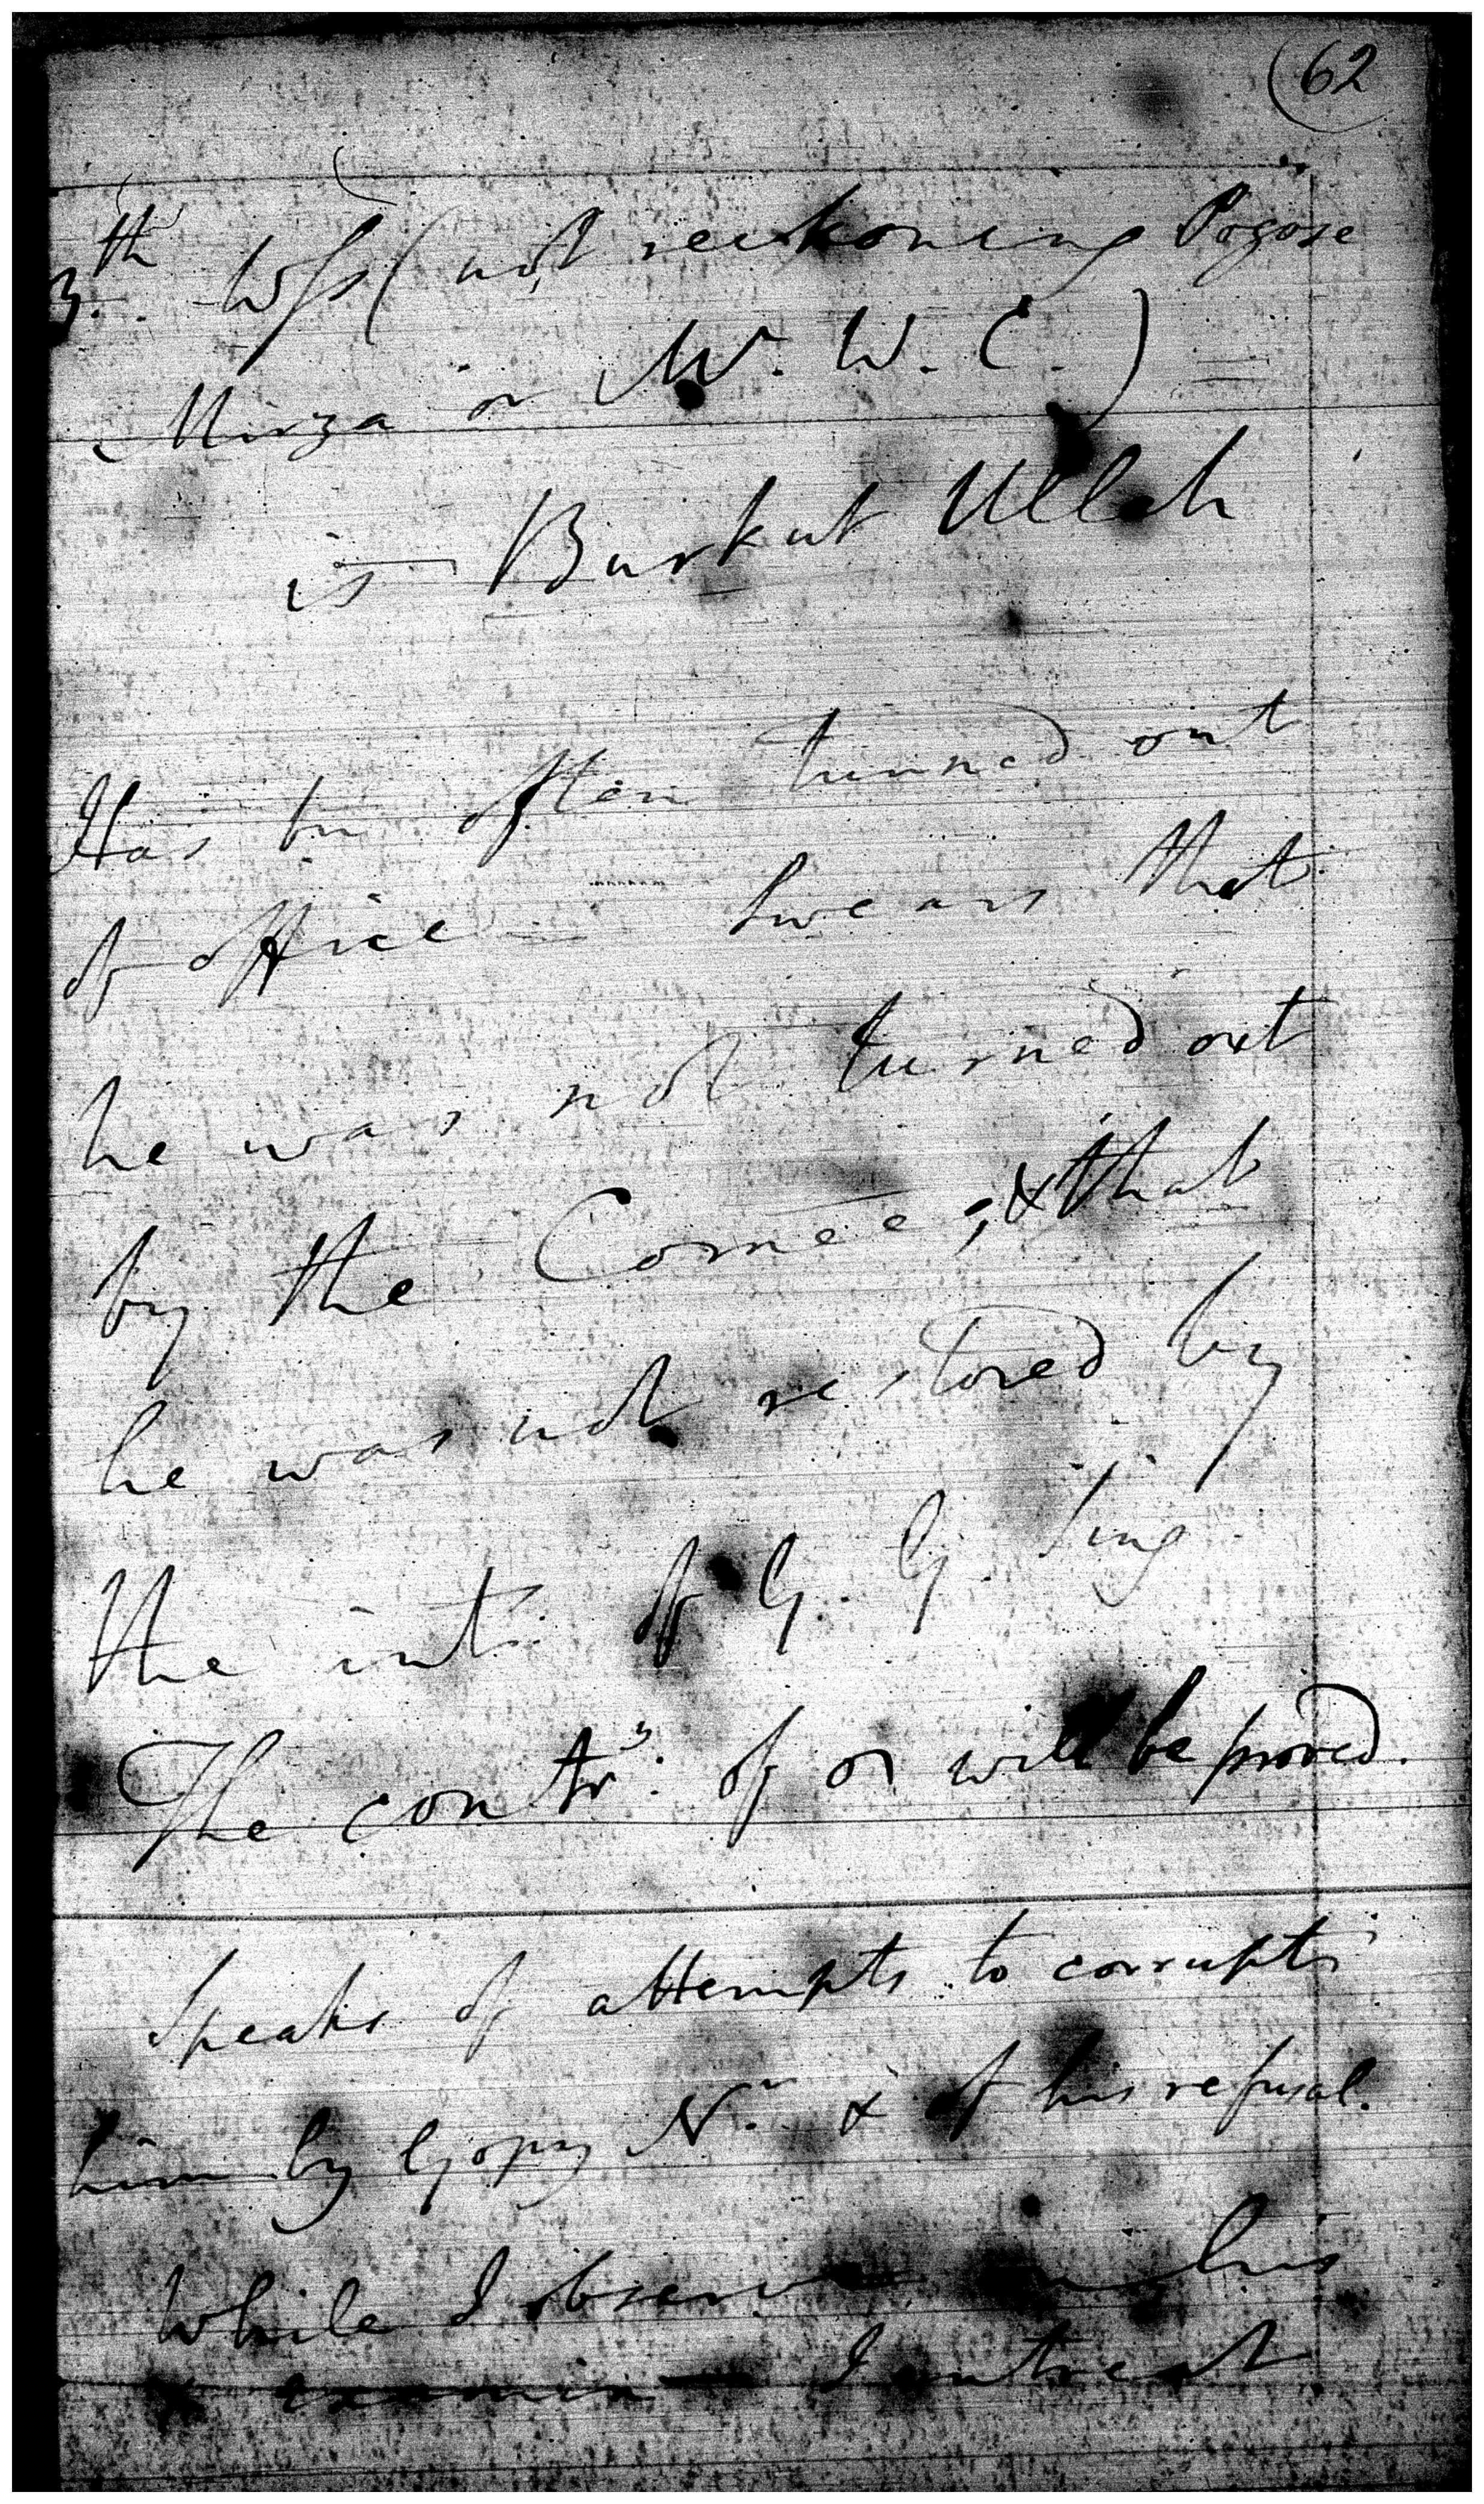 (62
3.th Wss (not reckoning Pogose
Mirza or Mr. W. C.)
is Burkut Ullah
Has bn often turned out
of office swears that
he was not turned out
by the Comee; & that
he was not restored by
the int. of G. G. Sing
The contry. of on will be proved.
Speaks of attempts to corrupt
him by Gopy Nn & of his refusal.
While I observe his
x examin I entreat